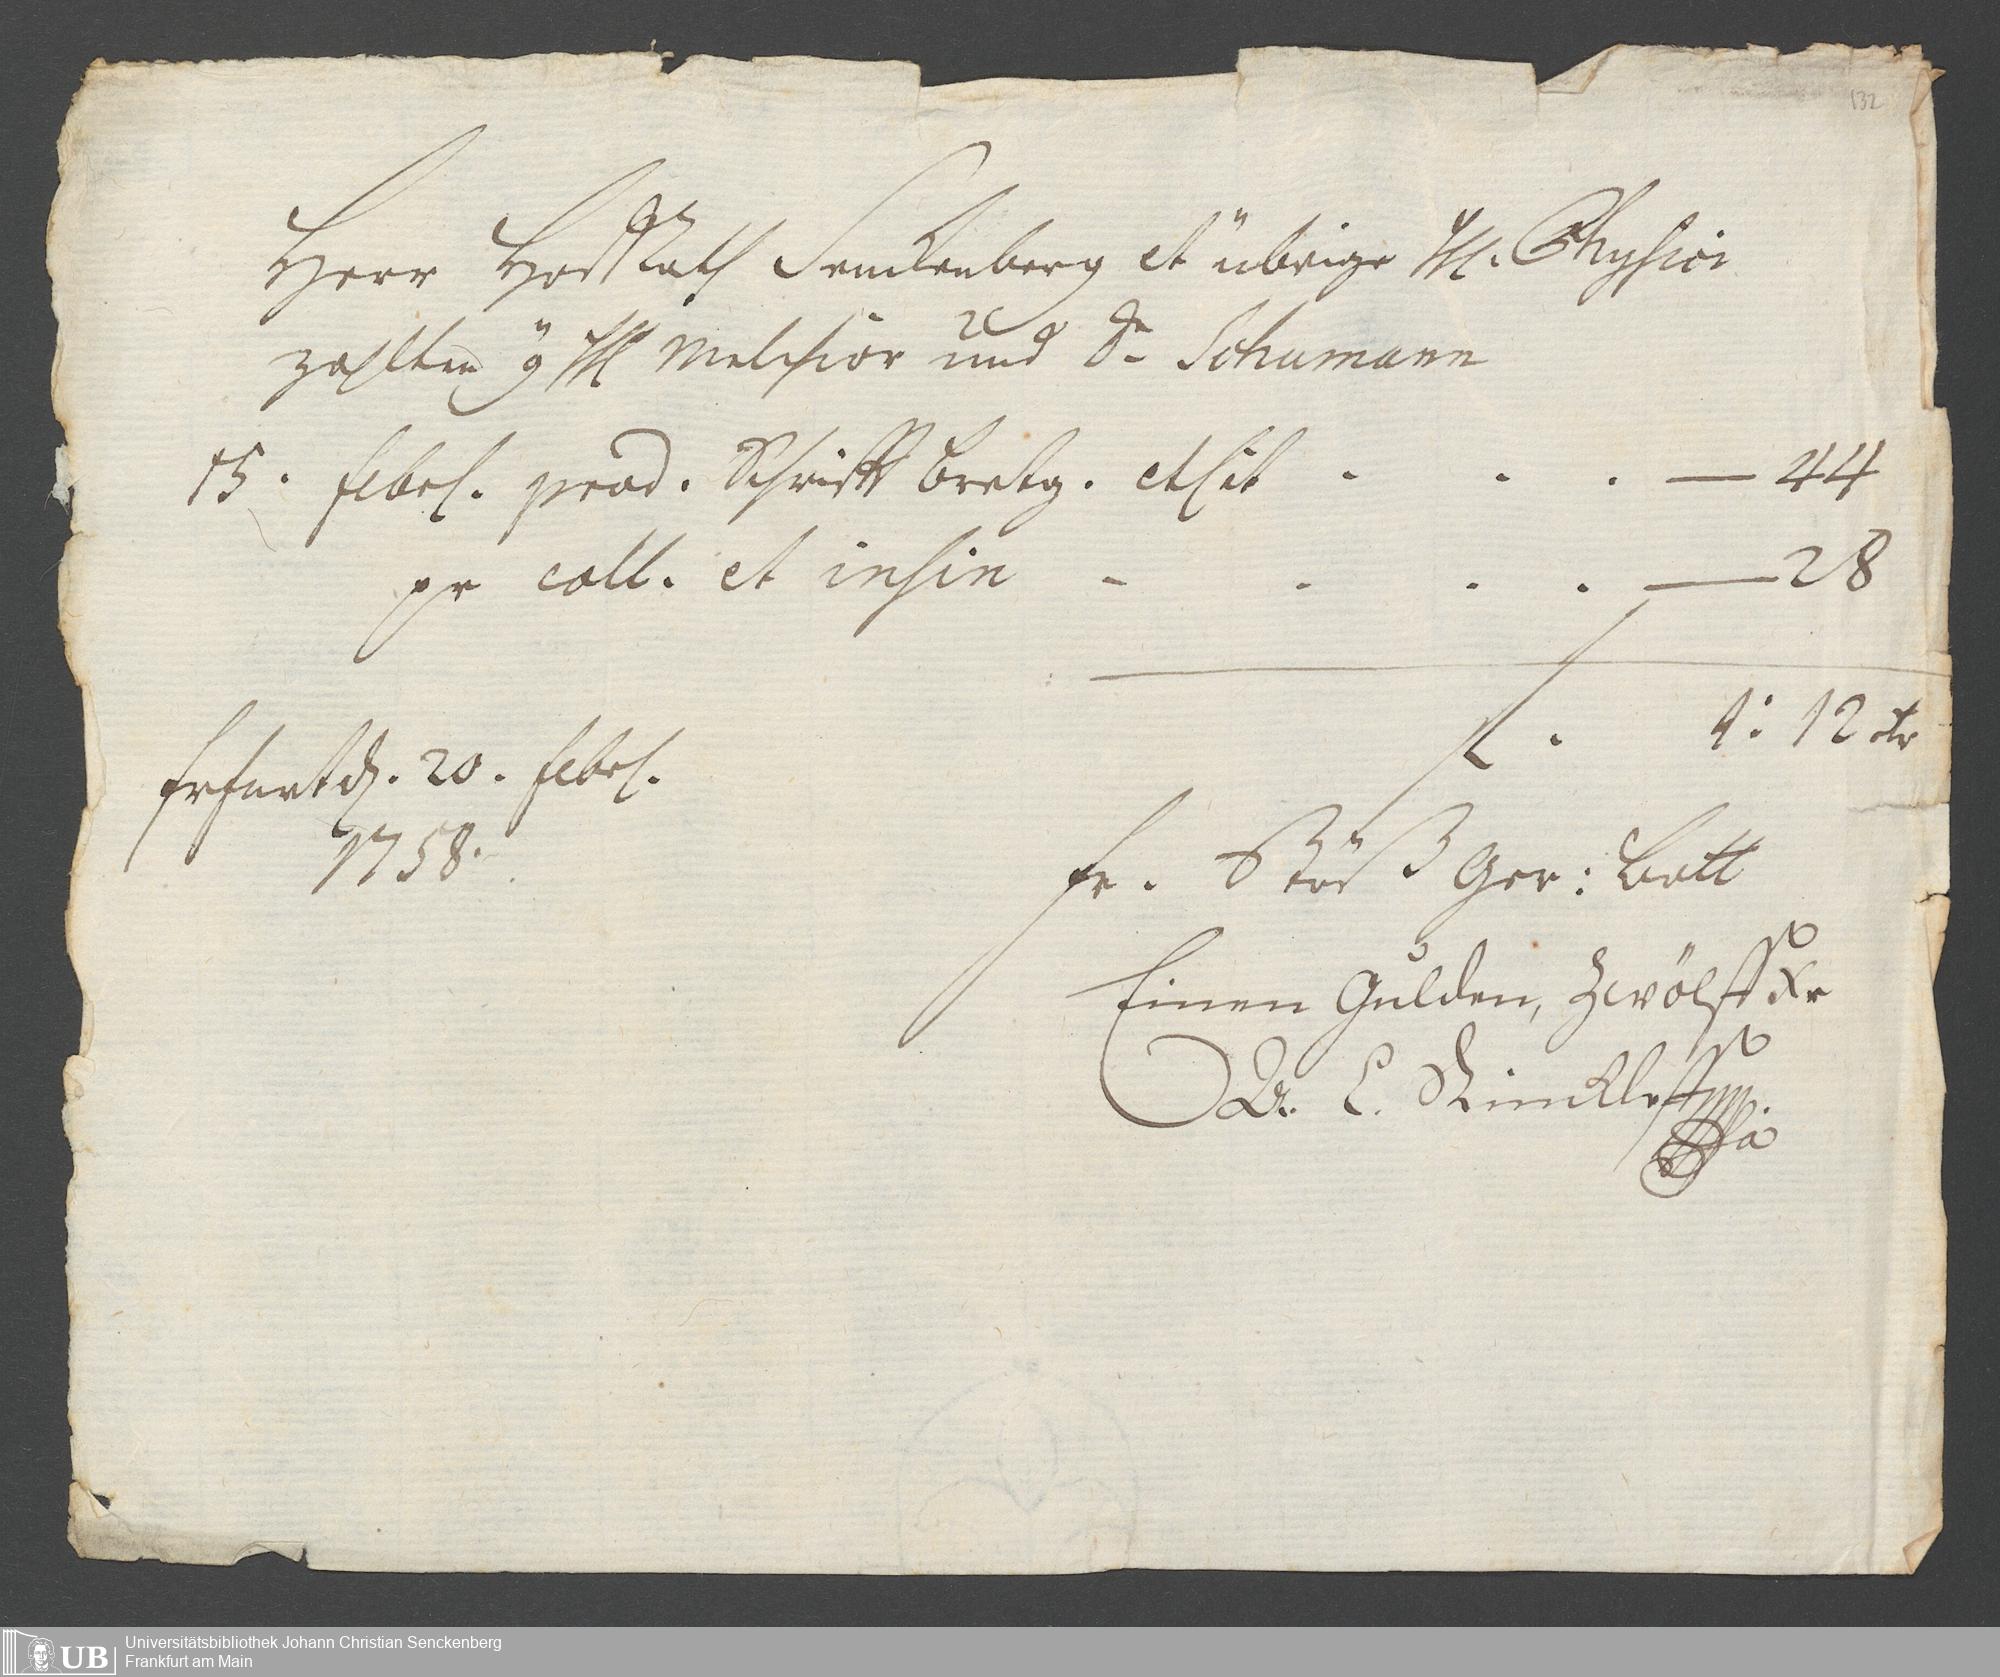 132
Herr HofRath Senckenberg et übrige HH. Physici
zahlten HH Melchior und Dr Schumann
15. febr. prod. Schrifft betg. et sit - - . — 44
pr coll. et insin - - . . — 28
f. 1: 12 xr
20. febr.
1758.
Ger: Bott
Einen Gulden, Zwölff xr
UB Universitätsbibliothek Johann Christian Senckenberg
Frankfurt am Main